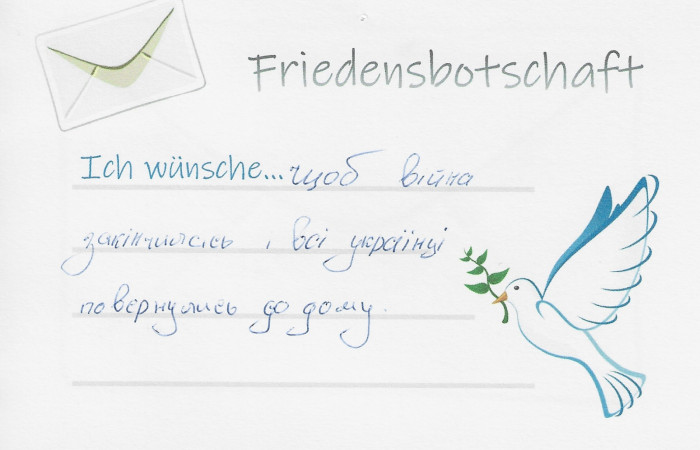 Friedensbotschaft
Ich wünsche... щоб війна
закінчилась і всі українці
повернулись до дому.